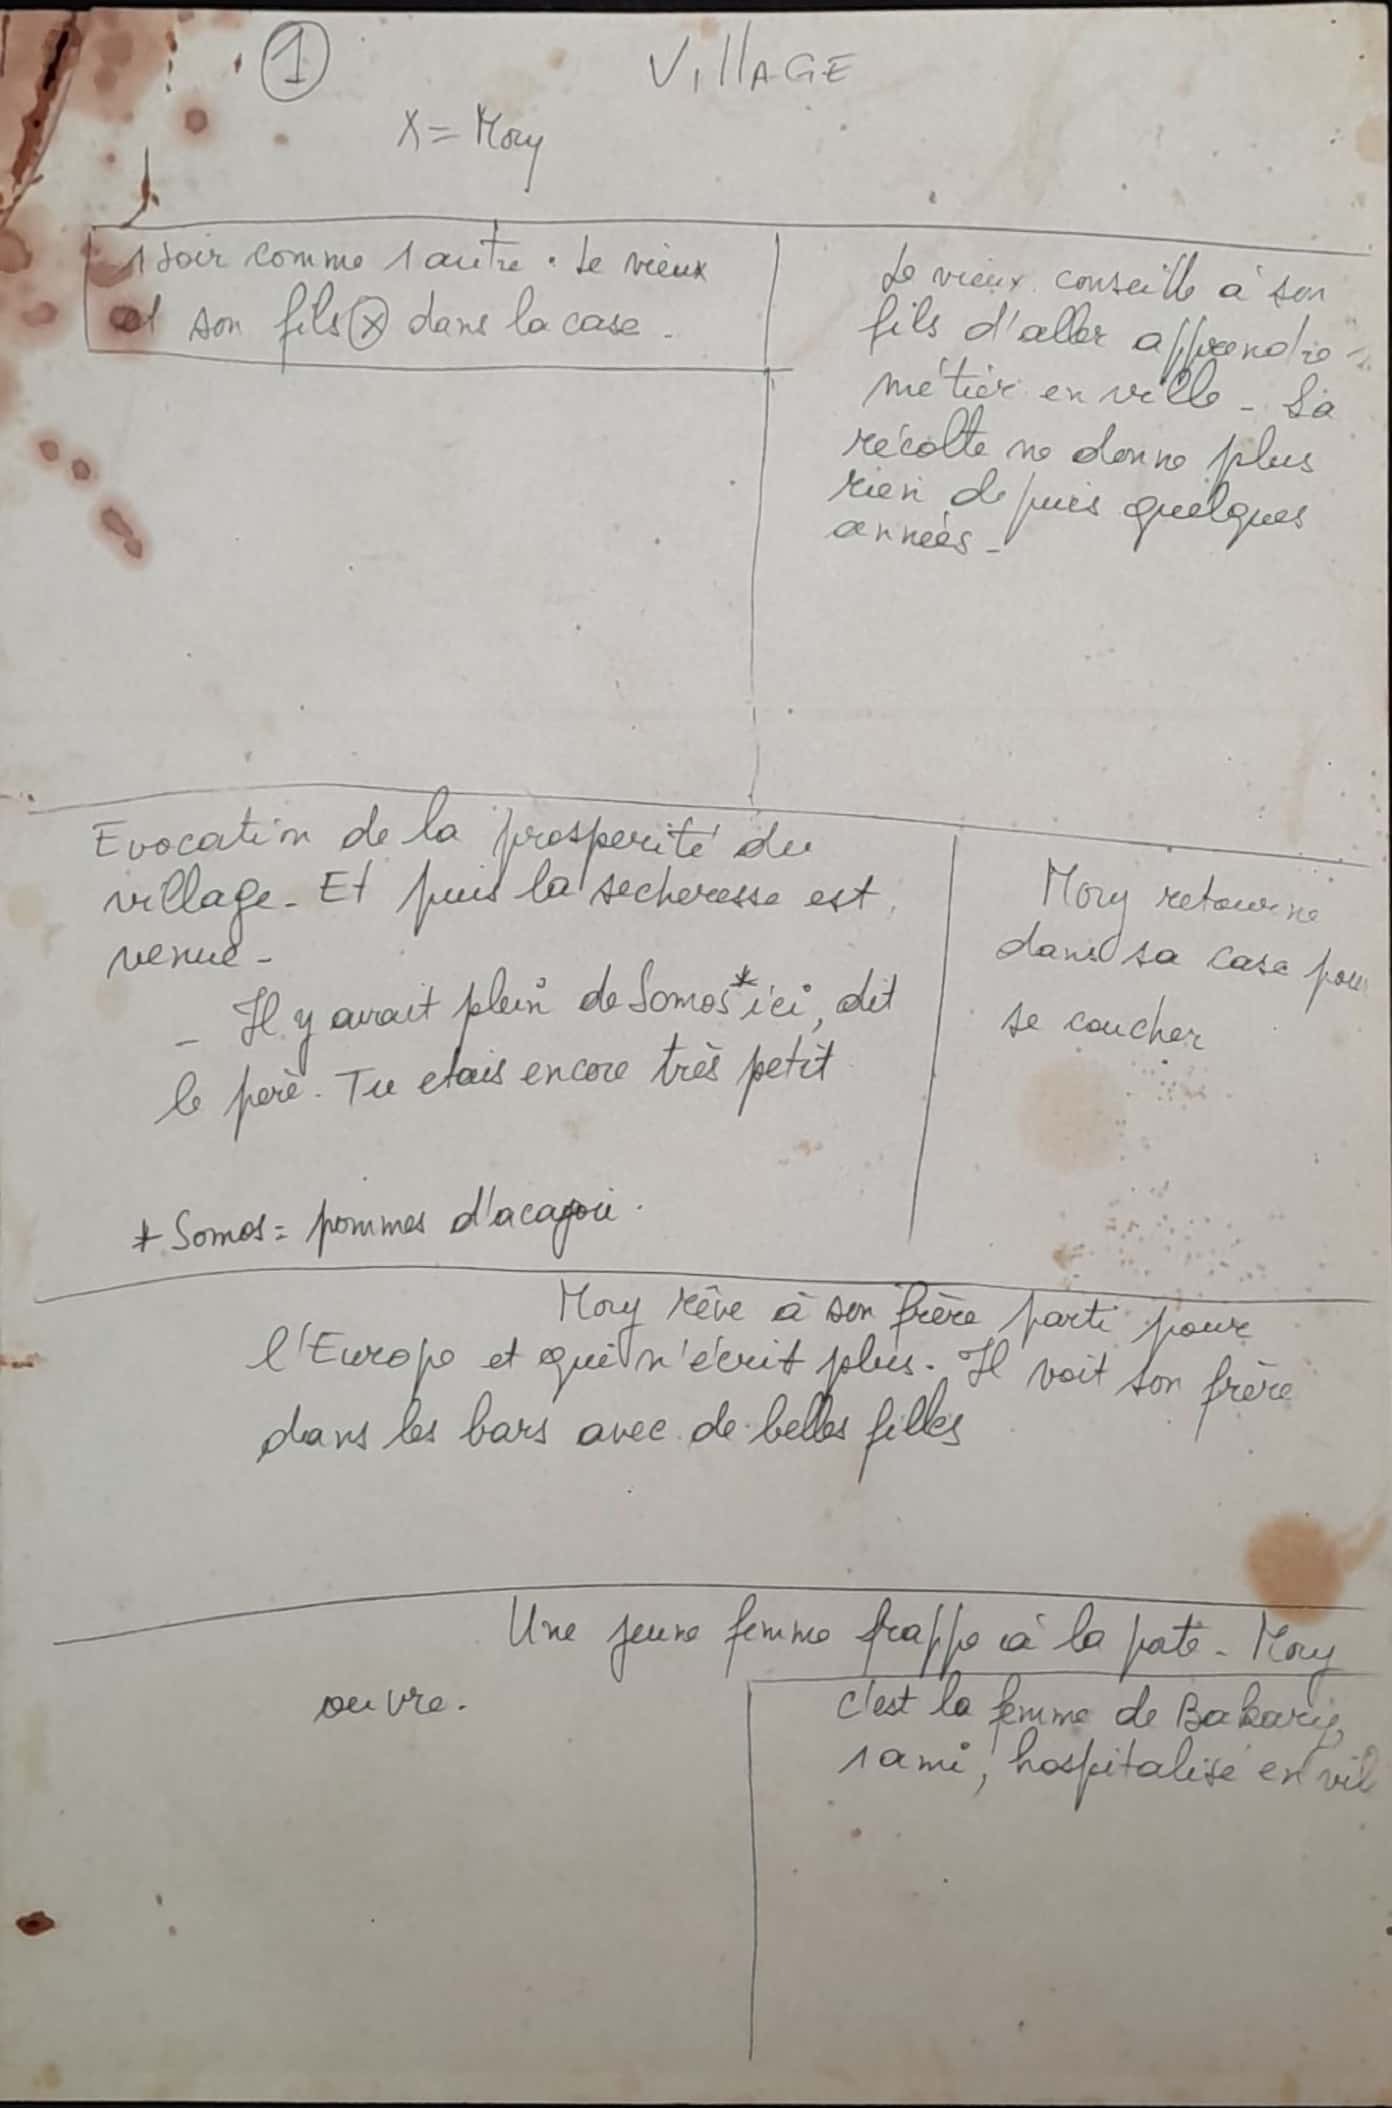 1
VIllAGE
X = Mory
1 soir comme 1 autre. Le vieux
et son fils (X) dans la case.
Le vieux conseille à son
fils d'aller apprendre
métier en ville - La
récolte ne donne plus
rien depuis quelques
années -
Evocation de la prosperité du
village - Et puis la secheresse est
venue -
- Il y avait plein de Somos* ici, dit
le père. Tu etais encore très petit
* Somos = pommes d'acajou.
Mory retourne
dans sa case pour
se coucher
Mory rêve à son frère parti pour
l'Europe et qui n'écrit plus. Il voit son frère
dans les bars avec de belles filles
Une jeune femme frappe à la porte - Mory
ouvre.
C'est la femme de Bakary,
1 ami, hospitalisé en vil